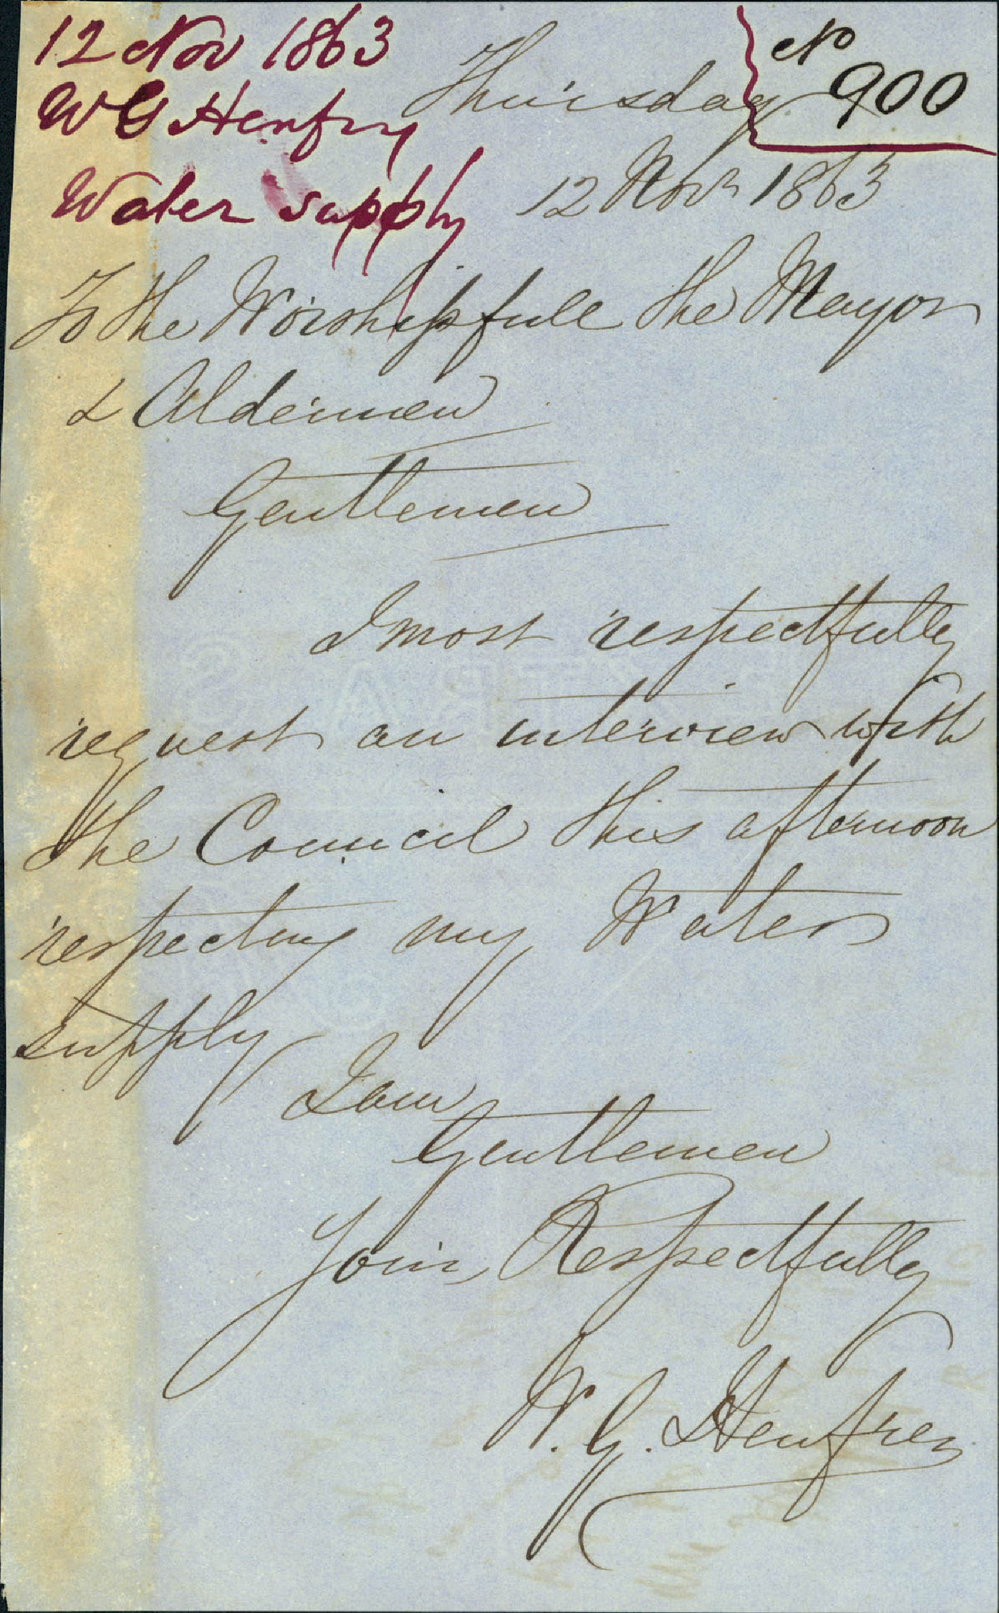 12 Nov 1863
W G Henfry
Water supply
No
900
Thursday
12 Novr 1863
To the Worshipfull the Mayor
& Aldermen
Gentlemen
I most respectfully
request an interview with
the Council this afternoon
respecting my Water
supply
I am
Gentlemen
Your Respectfully
W. G. Henfrey